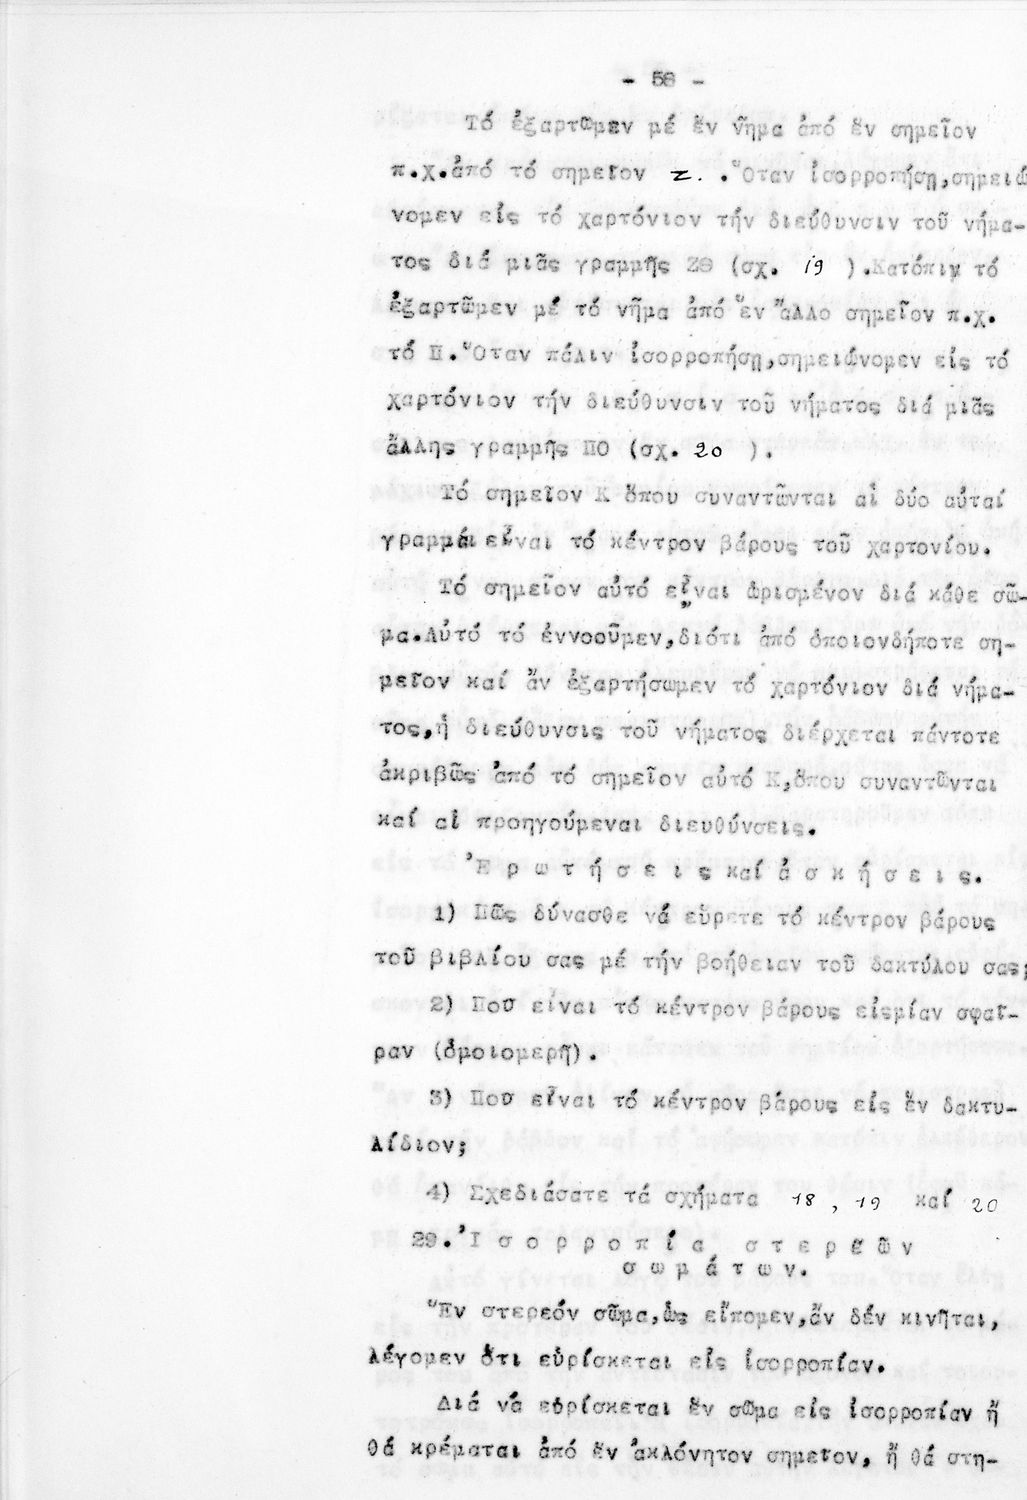 - 58 -
Τό ἐξαρτῶμεν μέ ἕν νῆμα ἀπό ἕν σημεῖον
π.χ.ἀπό τό σημεῖον Z. .Ὅταν ἰσορροπήσῃ,σημειώ
νομεν εἰς τό χαρτόνιον τήν διεύθυνσιν τοῦ νήμα-
τος διά μιᾶς γραμμῆς ΖΘ (σχ. 19 ).Κατόπιν τό
ἐξαρτῶμεν μέ τό νῆμα ἀπό ἕν ἄλλο σημεῖον π.χ.
τό Π.Ὅταν πάλιν ἰσορροπήσῃ,σημειώνομεν εἰς τό
χαρτόνιον τήν διεύθυνσιν τοῦ νήματος διά μιᾶς
ἄλλης γραμμῆς ΠΟ (σχ. 20 ).
Τό σημεῖον Κ ὅπου συναντῶνται αἱ δύο αὐταί
γραμμαί εἶναι τό κέντρον βάρους τοῦ χαρτονίου.
Τό σημεῖον αὐτό εἶναι ὡρισμένον διά κάθε σῶ-
μα.Αὐτό τό ἐννοοῦμεν,διότι ἀπό ὁποιονδήποτε ση-
μεῖον καί ἄν ἐξαρτήσωμεν τό χαρτόνιον διά νήμα-
τος,ἡ διεύθυνσις τοῦ νήματος διέρχεται πάντοτε
ἀκριβῶς ἀπό τό σημεῖον αὐτό Κ,ὅπου συναντῶνται
καί αἱ προηγούμεναι διευθύνσεις.
Ἐ ρ ω τ ή σ ε ι ς καί ἀ σ κ ή σ ε ι ς.
1) Πῶς δύνασθε νά εὕρετε τό κέντρον βάρους
τοῦ βιβλίου σας μέ τήν βοήθειαν τοῦ δακτύλου σας;
2) Ποῦ εἶναι τό κέντρον βάρους εἰςμίαν σφαῖ-
ραν (ὁμοιομερῆ).
3) Ποῦ εἶναι τό κέντρον βάρους εἰς ἕν δακτυ-
λίδιον;
4) Σχεδιάσατε τά σχήματα 18 , 19 καί 20
29.Ἰ σ ο ρ ρ ο π ί α σ τ ε ρ ε ῶ ν
σ ω μ ά τ ω ν.
Ἕν στερεόν σῶμα,ὡς εἴπομεν,ἄν δέν κινῆται,
λέγομεν ὅτι εὑρίσκεται εἰς ἰσορροπίαν.
Διά νά εὑρίσκεται ἕν σῶμα εἰς ἰσορροπίαν ἤ
θά κρέμαται ἀπό ἕν ἀκλόνητον σημεῖον, ἤ θά στη-